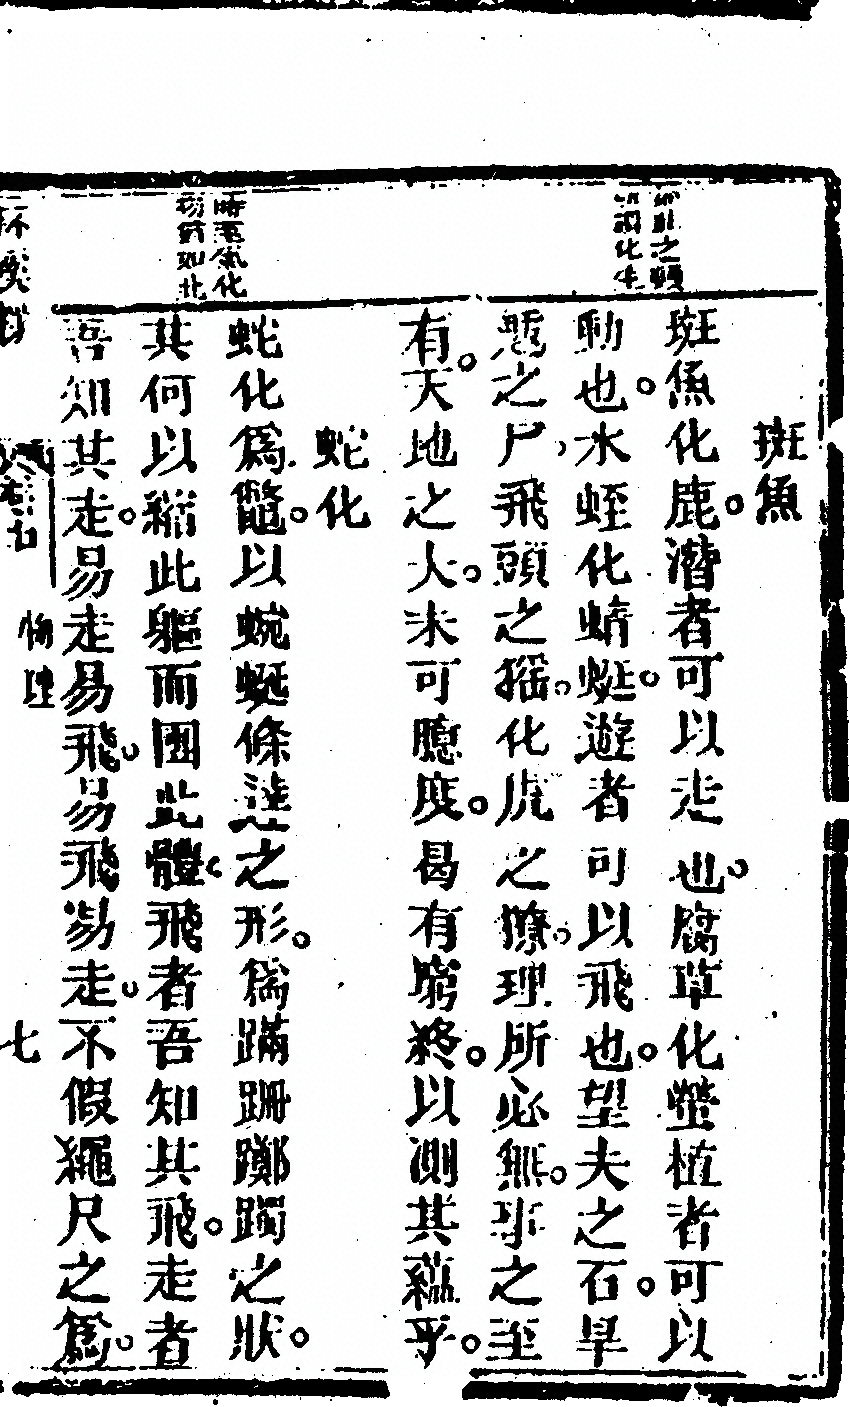 斑魚
斑魚化鹿潛者可以走也腐草化螢植者可以
動也水蛭化蜻蜓遊者可以飛也望夫之石旱
魃之尸飛頭之猺化虎之獠理所必無事之至
有天地之大未可臆度曷有窮終以測其蘊乎
蛇化
蛇化為鼈以蜿蜒條達之形為蹣跚躑躅之狀
其何以縮此軀而團此體飛者吾知其飛走者
吾知其走易走易飛易飛易走不假繩尺之為
之頭
化生
氣化
如此
物理
七